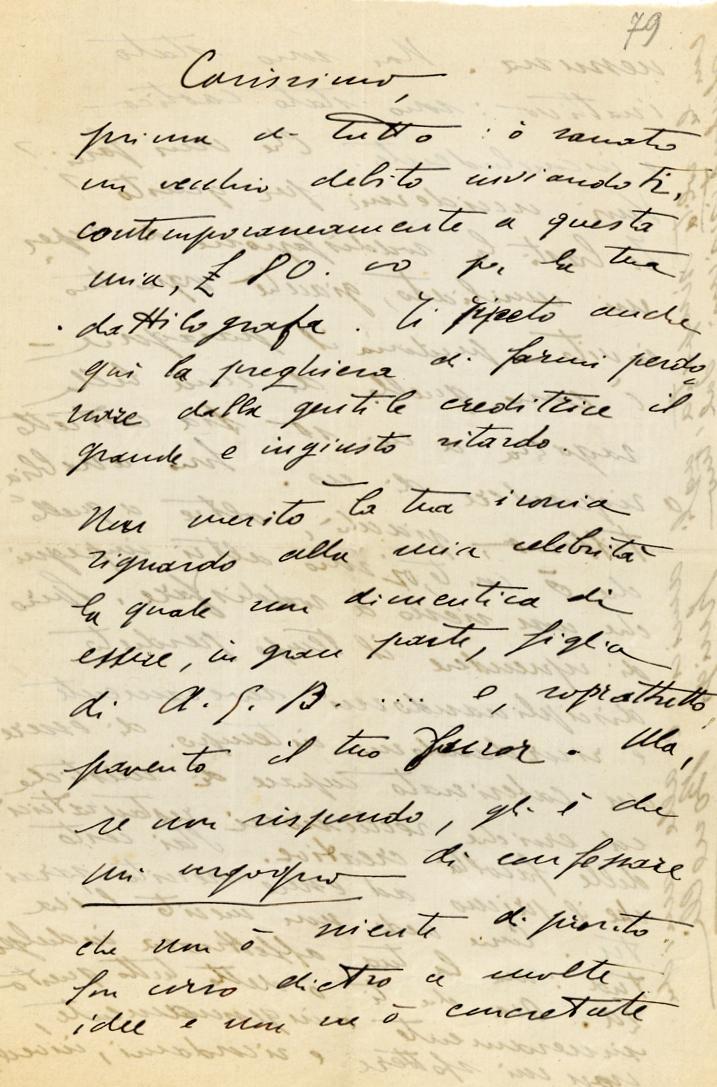 79
Carissimo,
prima di tutto : ò sanato
un vecchio debito inviandoti,
contemporaneamente a questa
mia, £ 80. oo per la tua
dattilografa. Ti ripeto anche
qui la preghiera di farmi perdo_
nare dalla gentile creditrice il
grande e ingiusto ritardo.
Non merito la tua ironia
riguardo alla mia celebrità
la quale non dimentica di
essere, in gran parte, figlia
di A. G. B. .... e, soprattutto,
pavento il tuo furor. Ma,
se non rispondo, gli è che
mi vergogno di confessare
che non ò niente di pronto
son corso dietro a molte
idee e non ne ò concretate